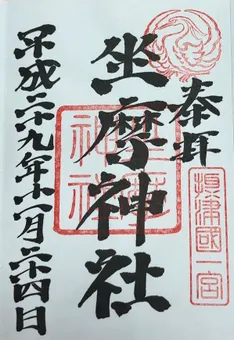 奉拝
摂津國一宮
坐摩神社
坐摩神社
平成二十九年十一月二十四日